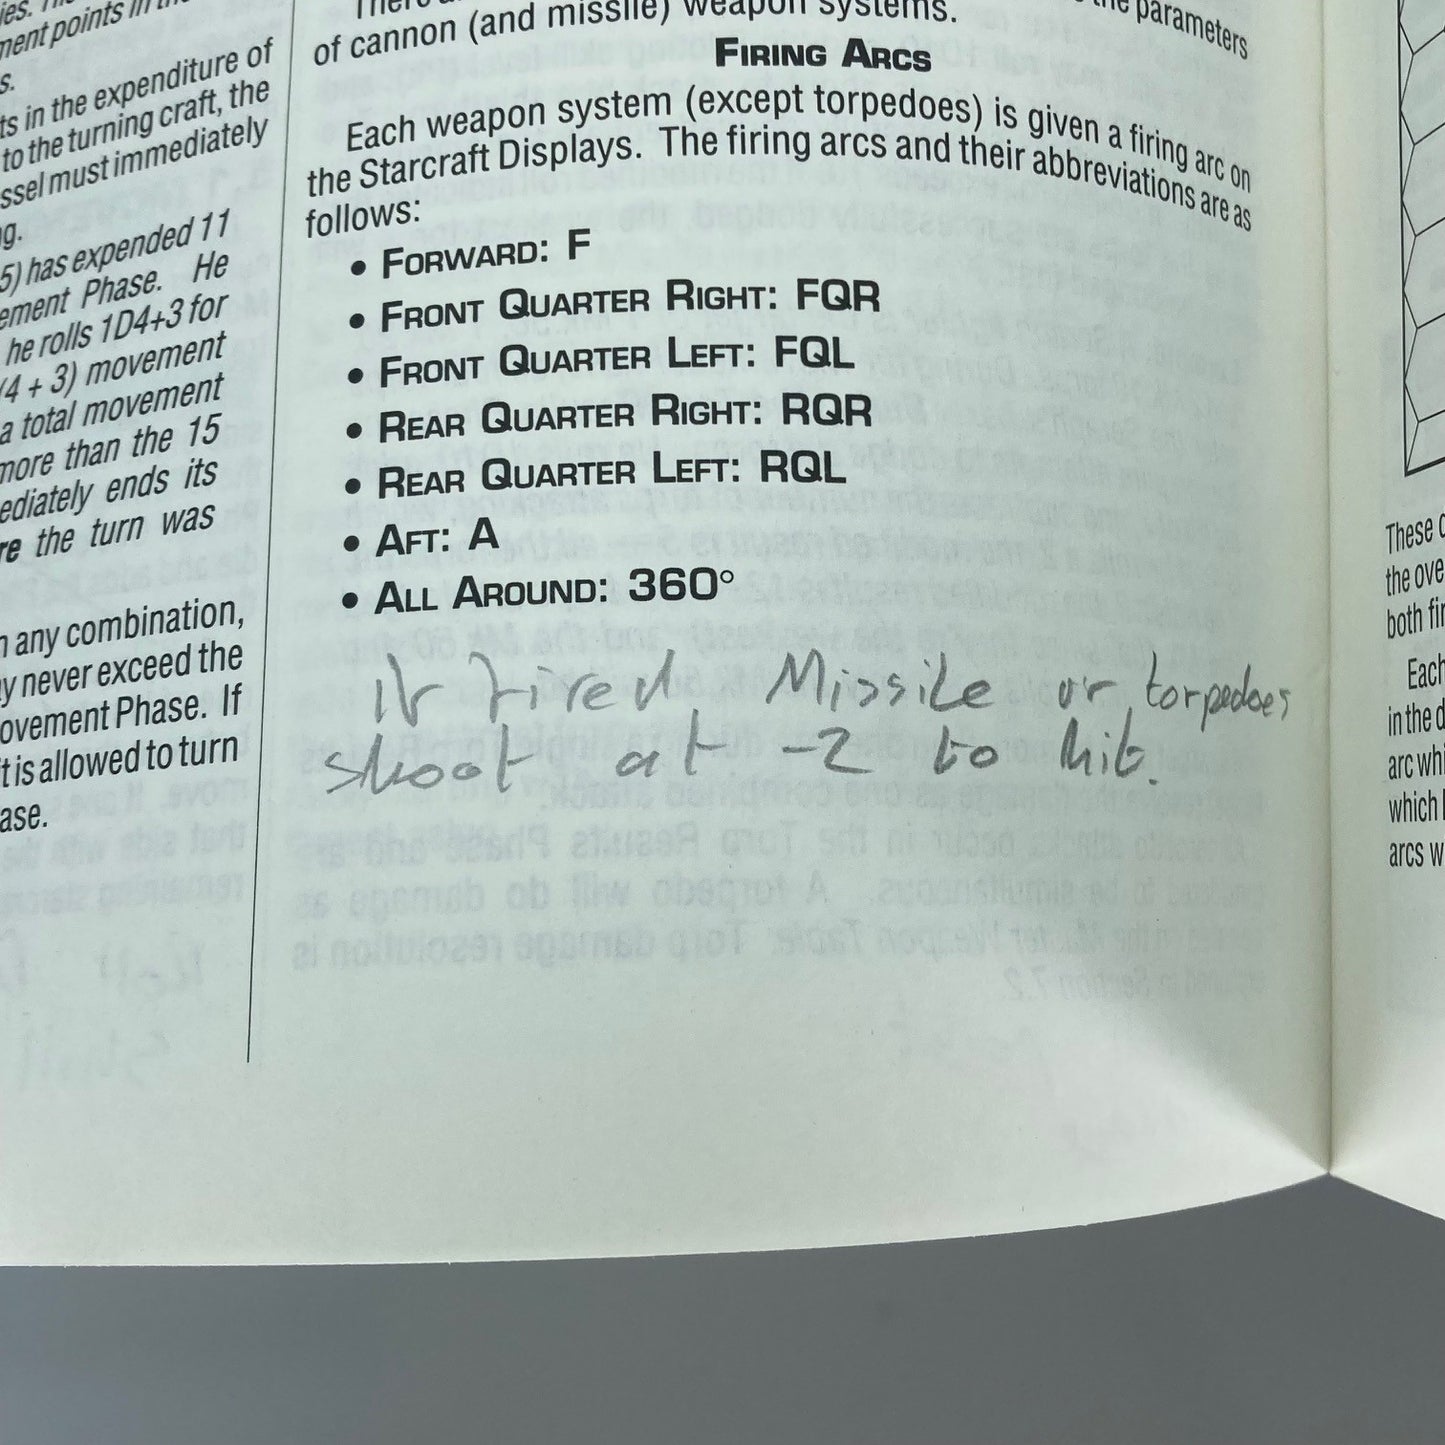 ment points in
s.
ts in the expenditure of
to the turning craft, the
ssel must immediately
ng.
5) has expended 11
ement Phase. He
he rolls 1D4+3 for
(4 + 3) movement
a total movement
more than the 15
ediately ends its
re the turn was
n any combination,
y never exceed the
ovement Phase. If
t is allowed to turn
ase.
the parameters
of cannon (and missile) weapon systems.
FIRING ARCS
Each weapon system (except torpedoes) is given a firing arc on
the Starcraft Displays. The firing arcs and their abbreviations are as
follows:
• FORWARD: F
• FRONT QUARTER RIGHT: FQR
• FRONT QUARTER LEFT: FQL
• REAR QUARTER RIGHT: RQR
• REAR QUARTER LEFT: RQL
• AFT: A
• ALL AROUND: 360°
If fired Missile or torpedoes
shoot at -2 to hit.
These
the ove
both fir
Each
in the d
arc whi
which
arcs w